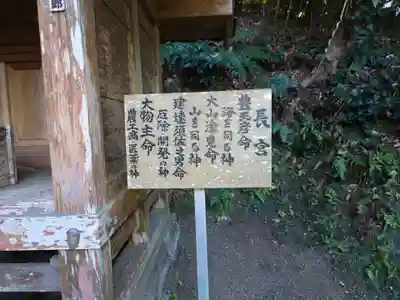 長宮
豊玉彦命
海を司る神
大山津見命
山を司る神
建速須佐之男命
厄除・開発の神
大物主命
農工商・医薬の神